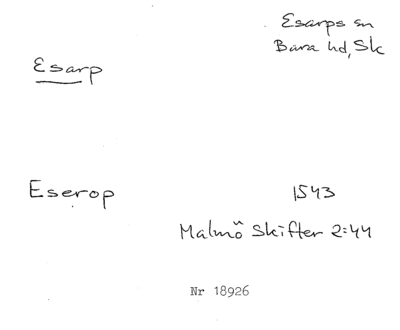 Esarps sn
Bara hd, Sk
Esarp
Eserop 1543
Malmö Skifter 2:44
Nr 18926